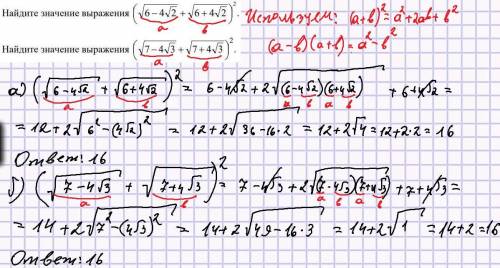 Найдите значение выражения (√(6−4√2) + √(6+4√2))².
a b
Используем: (a+b)² = a²+2ab+b²
Найдите значение выражения (√(7−4√3) + √(7+4√3))².
a b
(a−b)(a+b)=a²−b²
а) (√(6−4√2) + √(6+4√2))² = 6−4√2+2√((6−4√2)(6+4√2)) +6+4√2 =
a b a b a b
= 12+2√(6²−(4√2)²) = 12+2√(36−16·2) = 12+2√4 = 12+2·2 = 16
Ответ: 16
б) (√(7−4√3) + √(7+4√3))² = 7−4√3+2√((7−4√3)(7+4√3)) +7+4√3 =
a b a b a b
= 14+2√(7²−(4√3)²) = 14+2√(49−16·3) = 14+2√1 = 14+2=16
Ответ: 16